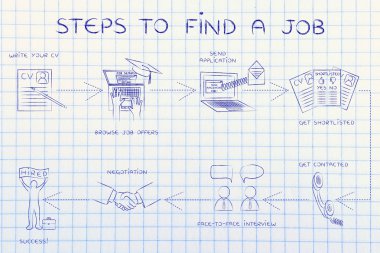 STEPS TO FIND A JOB
WRITE YOUR CV
CV
BROWSE JOB OFFERS
SEND
APPLICATION
CV
SHORTLISTED
YES NO
GET SHORTLISTED
GET CONTACTED
FACE-TO-FACE INTERVIEW
NEGOTIATION
HIRED
SUCCESS!